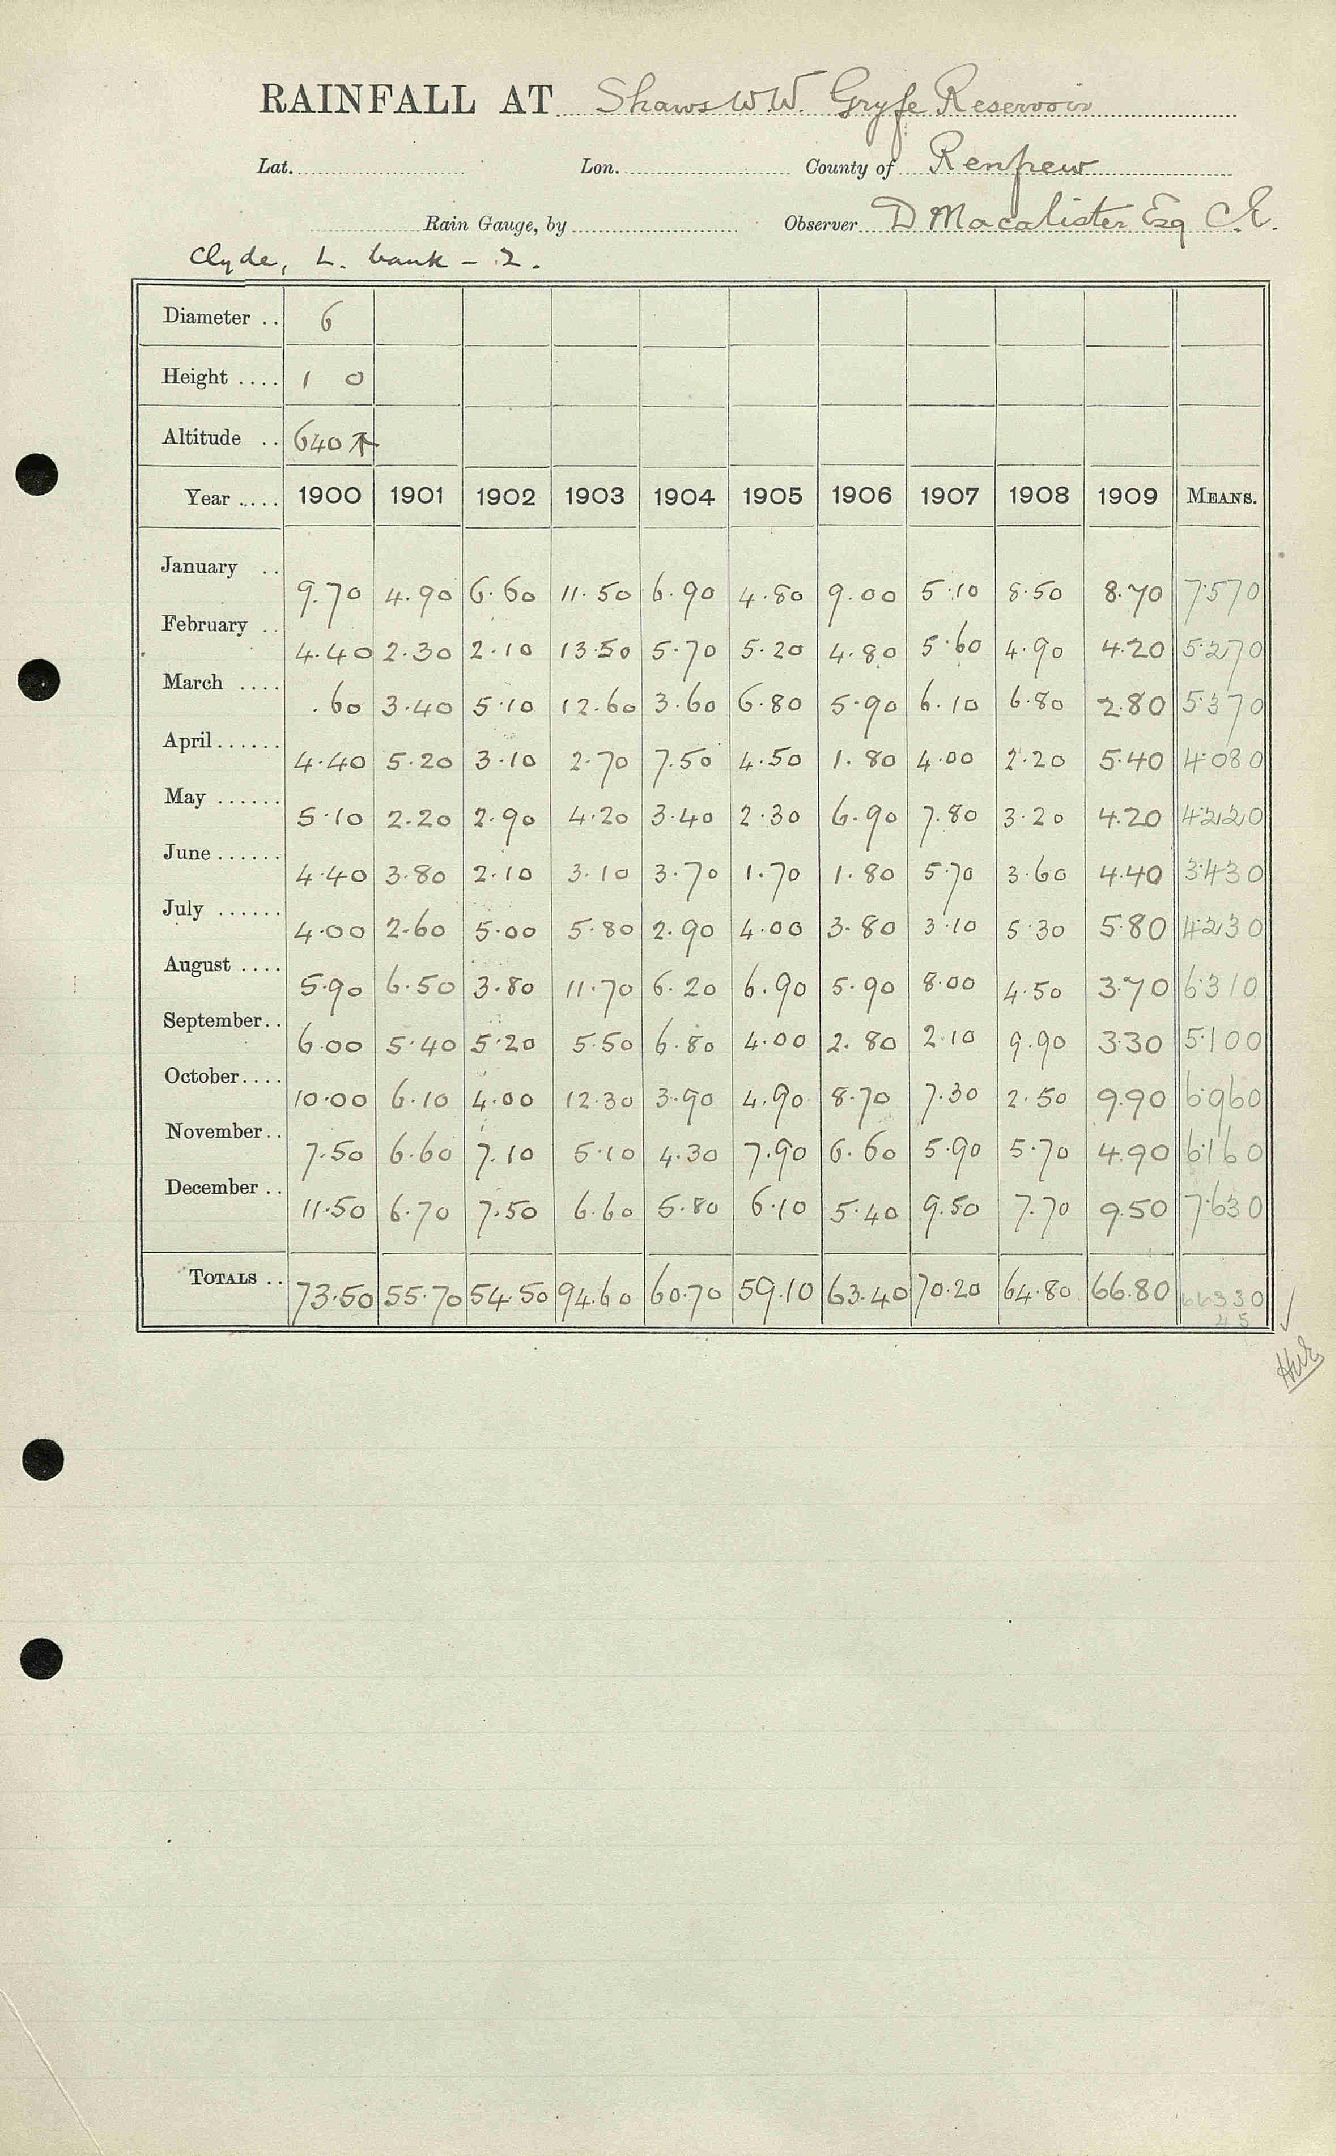 RAINFALL AT Shaws W.W. Gryfe Reservoir
Lat. Lon. County of Renfrew
Rain Gauge, by Observer D Macalister Esq C.E.
Clyde, L. bank - 2.
Diameter .. 6
Height .... 1 0
Altitude .. 640
Year .... 1900 1901 1902 1903 1904 1905 1906 1907 1908 1909 MEANS.
January .. 9.70 4.90 6.60 11.50 6.90 4.80 9.00 5.10 8.50 8.70 7.570
February .. 4.40 2.30 2.10 13.50 5.70 5.20 4.80 5.60 4.90 4.20 5.270
March .... .60 3.40 5.10 12.60 3.60 6.80 5.90 6.10 6.80 2.80 5.370
April ...... 4.40 5.20 3.10 2.70 7.50 4.50 1.80 4.00 2.20 5.40 4.080
May ...... 5.10 2.20 2.90 4.20 3.40 2.30 6.90 7.80 3.20 4.20 4.220
June ...... 4.40 3.80 2.10 3.10 3.70 1.70 1.80 5.70 3.60 4.40 3.430
July ...... 4.00 2.60 5.00 5.80 2.90 4.00 3.80 3.10 5.30 5.80 4.230
August .... 5.90 6.50 3.80 11.70 6.20 6.90 5.90 8.00 4.50 3.70 6.310
September.. 6.00 5.40 5.20 5.50 6.80 4.00 2.80 2.10 9.90 3.30 5.100
October.... 10.00 6.10 4.00 12.30 3.90 4.90 8.70 7.30 2.50 9.90 6.960
November.. 7.50 6.60 7.10 5.10 4.30 7.90 6.60 5.90 5.70 4.90 6.160
December .. 11.50 6.70 7.50 6.60 5.80 6.10 5.40 9.50 7.70 9.50 7.630
TOTALS .. 73.50 55.70 54.50 94.60 60.70 59.10 63.40 70.20 64.80 66.80 66330
45